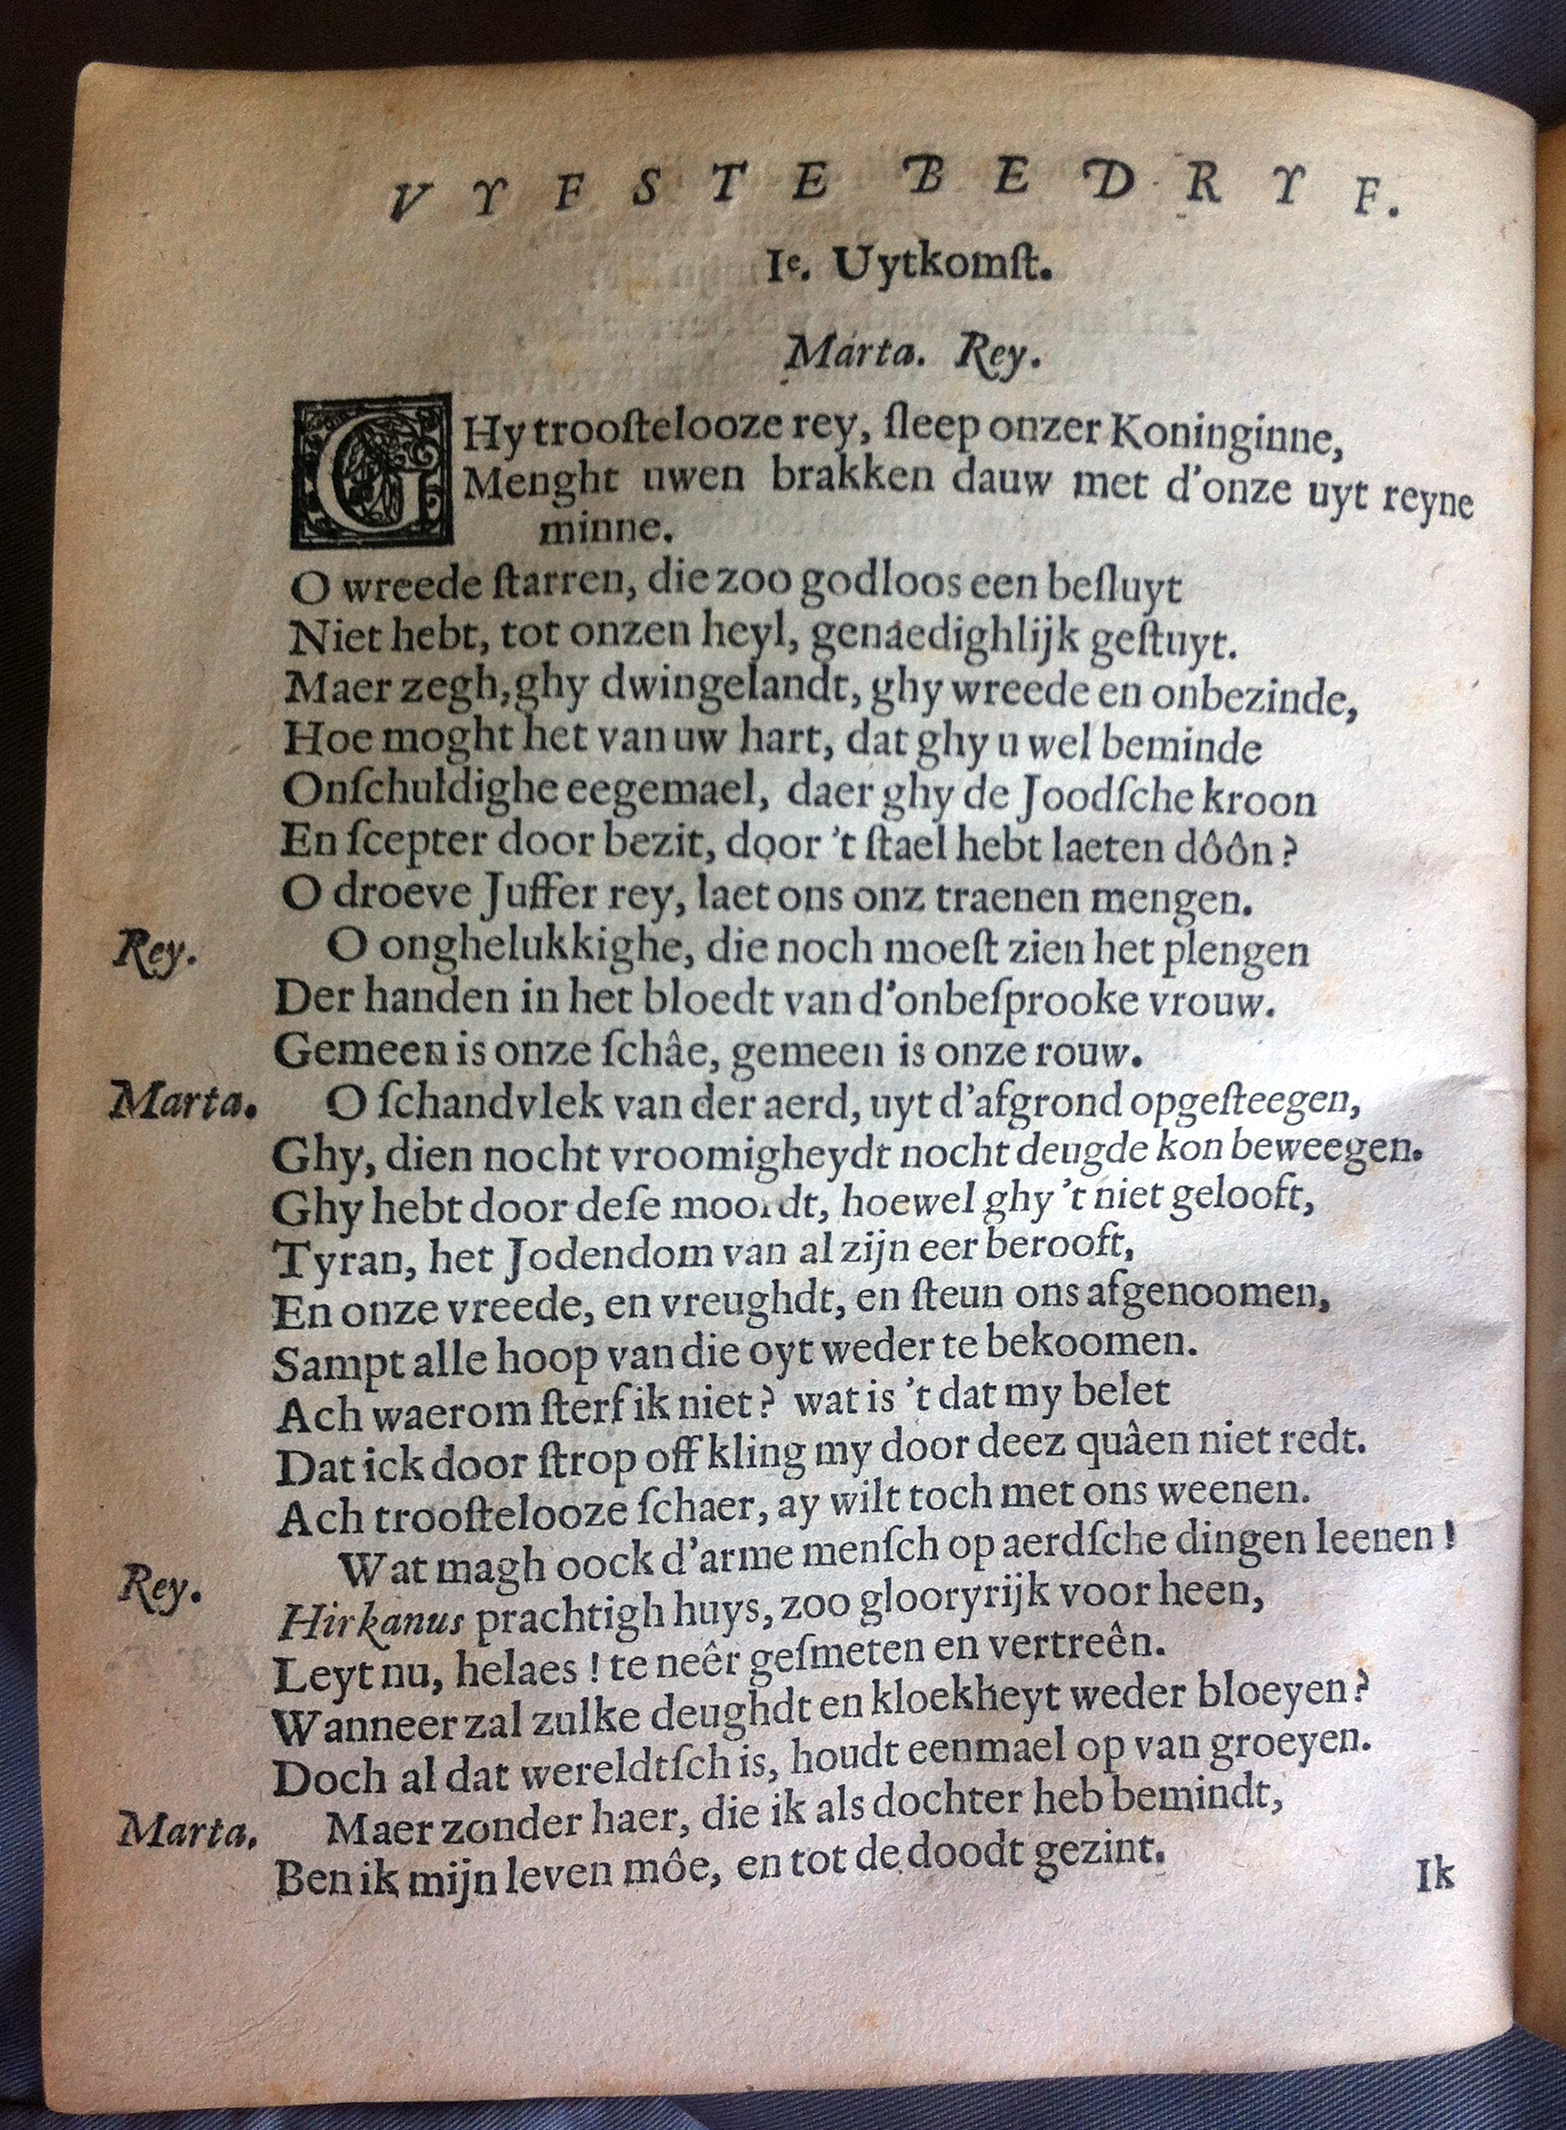 VYFSTE BEDRYF.
Iᵉ. Uytkomſt.
Marta. Rey.
GHy trooſtelooze rey, ſleep onzer Koninginne,
Menght uwen brakken dauw met d'onze uyt reyne
minne.
O wreede ſtarren, die zoo godloos een beſluyt
Niet hebt, tot onzen heyl, genaedighlijk geſtuyt.
Maer zegh, ghy dwingelandt, ghy wreede en onbezinde,
Hoe moght het van uw hart, dat ghy u wel beminde
Onſchuldighe eegemael, daer ghy de Joodſche kroon
En ſcepter door bezit, door 't ſtael hebt laeten dôôn?
O droeve Juffer rey, laet ons onz traenen mengen.
Rey. O onghelukkighe, die noch moeſt zien het plengen
Der handen in het bloedt van d'onbeſprooke vrouw.
Gemeen is onze ſchâe, gemeen is onze rouw.
Marta. O ſchandvlek van der aerd, uyt d'afgrond opgeſteegen,
Ghy, dien nocht vroomigheydt nocht deugde kon beweegen.
Ghy hebt door deſe moordt, hoewel ghy 't niet gelooft,
Tyran, het Jodendom van al zijn eer berooft,
En onze vreede, en vreughdt, en ſteun ons afgenoomen,
Sampt alle hoop van die oyt weder te bekoomen.
Ach waerom ſterf ik niet? wat is 't dat my belet
Dat ick door ſtrop off kling my door deez quâen niet redt.
Ach trooſtelooze ſchaer, ay wilt toch met ons weenen.
Rey. Wat magh oock d'arme menſch op aerdſche dingen leenen!
Hirkanus prachtigh huys, zoo glooryrijk voor heen,
Leyt nu, helaes! te neêr geſmeten en vertreên.
Wanneer zal zulke deughdt en kloekheyt weder bloeyen?
Doch al dat wereldtſch is, houdt eenmael op van groeyen.
Marta. Maer zonder haer, die ik als dochter heb bemindt,
Ben ik mijn leven môe, en tot de doodt gezint.
Ik